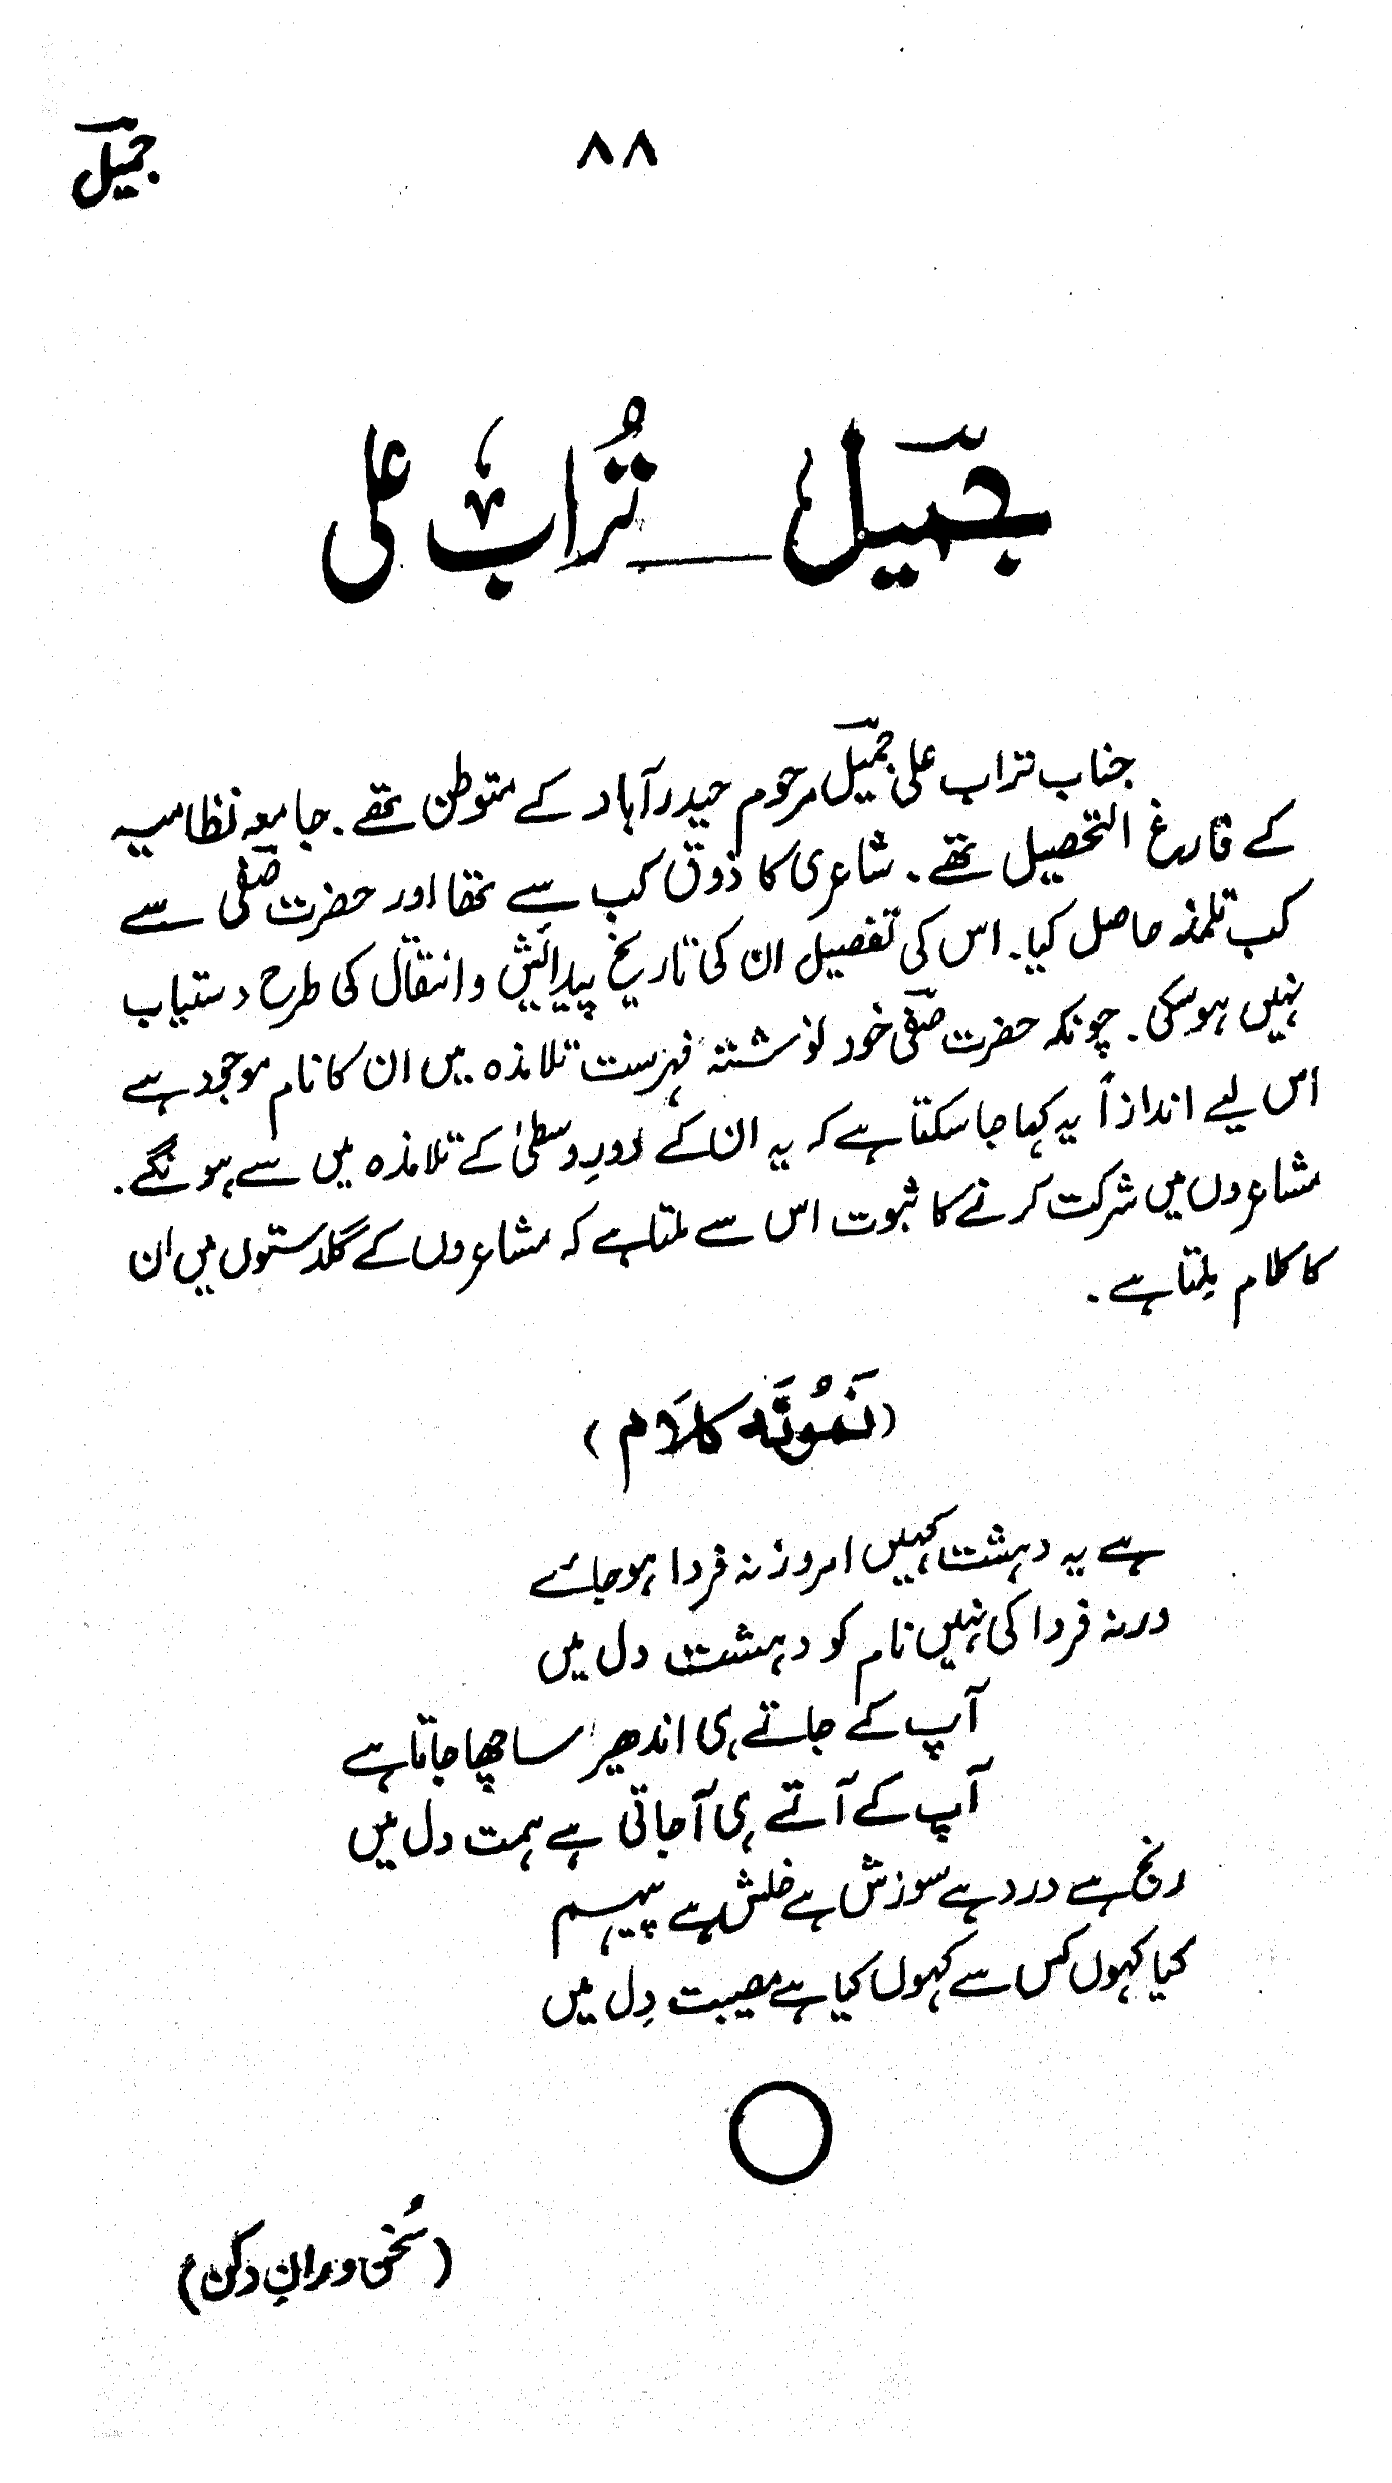 جمیلؔ
۸۸
جمیلؔ ــ تُراب علی
جناب تراب علی جمیلؔ مرحوم حیدرآباد کے متوطن تھے۔ جامعہ نظامیہ
کے فارغ التحصیل تھے۔ شاعری کا ذوق کب سے تھا اور حضرت صفیؔ سے
کب تلمذ حاصل کیا۔ اس کی تفصیل ان کی تاریخ پیدائش و انتقال کی طرح دستیاب
نہیں ہوسکی۔ چونکہ حضرت صفیؔ خود نوشتہ فہرست تلامذہ میں ان کا نام موجود ہے
اس لیے اندازاً یہ کہا جاسکتا ہے کہ یہ ان کے دورِ وسطیٰ کے تلامذہ میں سے ہونگے۔
مشاعروں میں شرکت کرنے کا ثبوت اس سے ملتا ہے کہ مشاعروں کے گلدستوں میں ان
کا کلام مِلتا ہے۔
(نَمُونَہ کلَام)
ہے یہ دہشت کہیں امروز نہ فردا ہوجائے
ورنہ فردا کی نہیں نام کو دہشت دل میں
آپ کے جاتے ہی اندھیرا سا چھا جاتا ہے
آپ کے آتے ہی آجاتی ہے ہمت دل میں
رنج ہے درد ہے سوزش ہے خلش ہے پیہم
کیا کہوں کس سے کہوں کیا ہے مصیبت دِل میں
(سُخن ورانِ دکن)